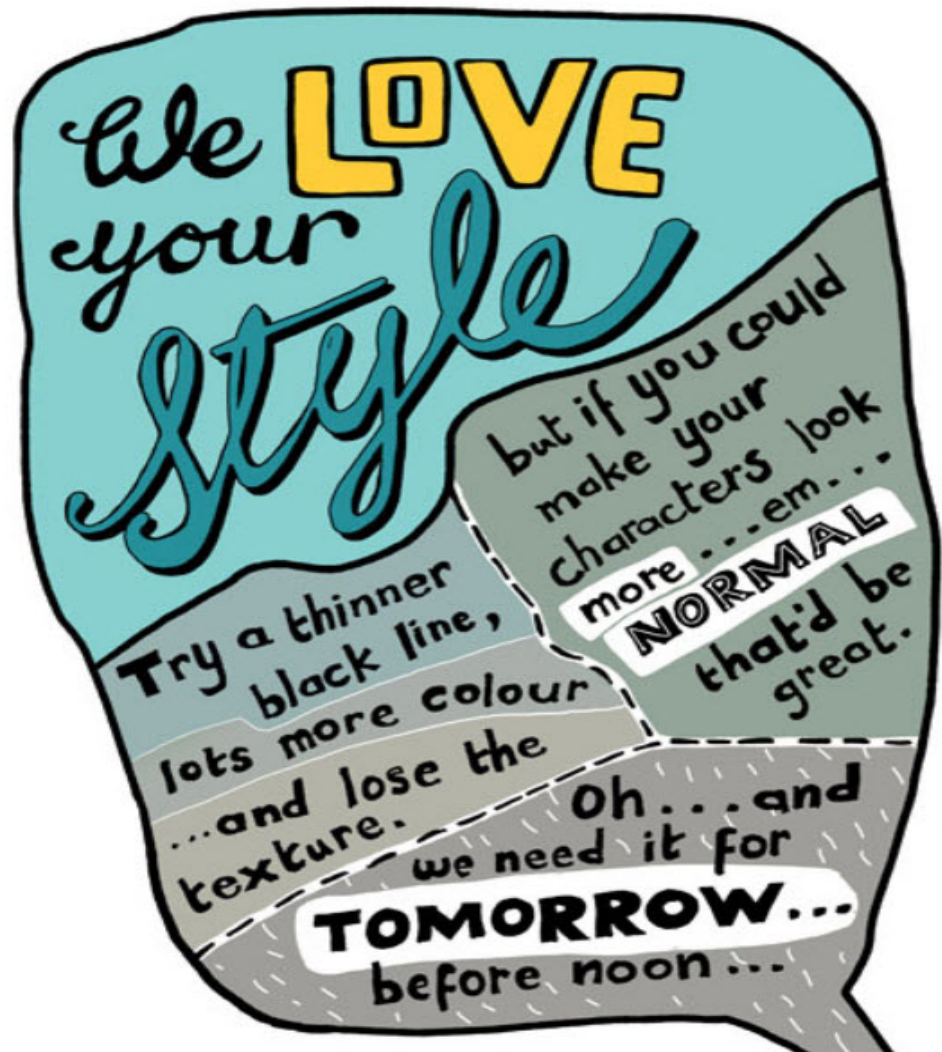 We LOVE
your
style
but if you could
make your
characters look
more ...em...
NORMAL
that'd be
great.
Try a thinner
black line,
lots more colour
...and lose the
texture.
Oh...and
we need it for
TOMORROW...
before noon...